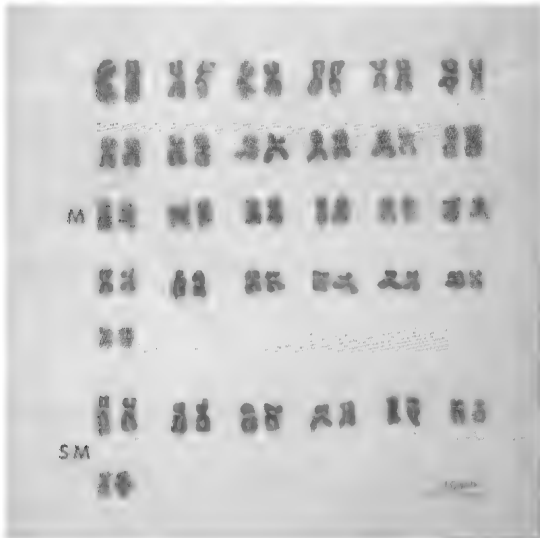 M
SM